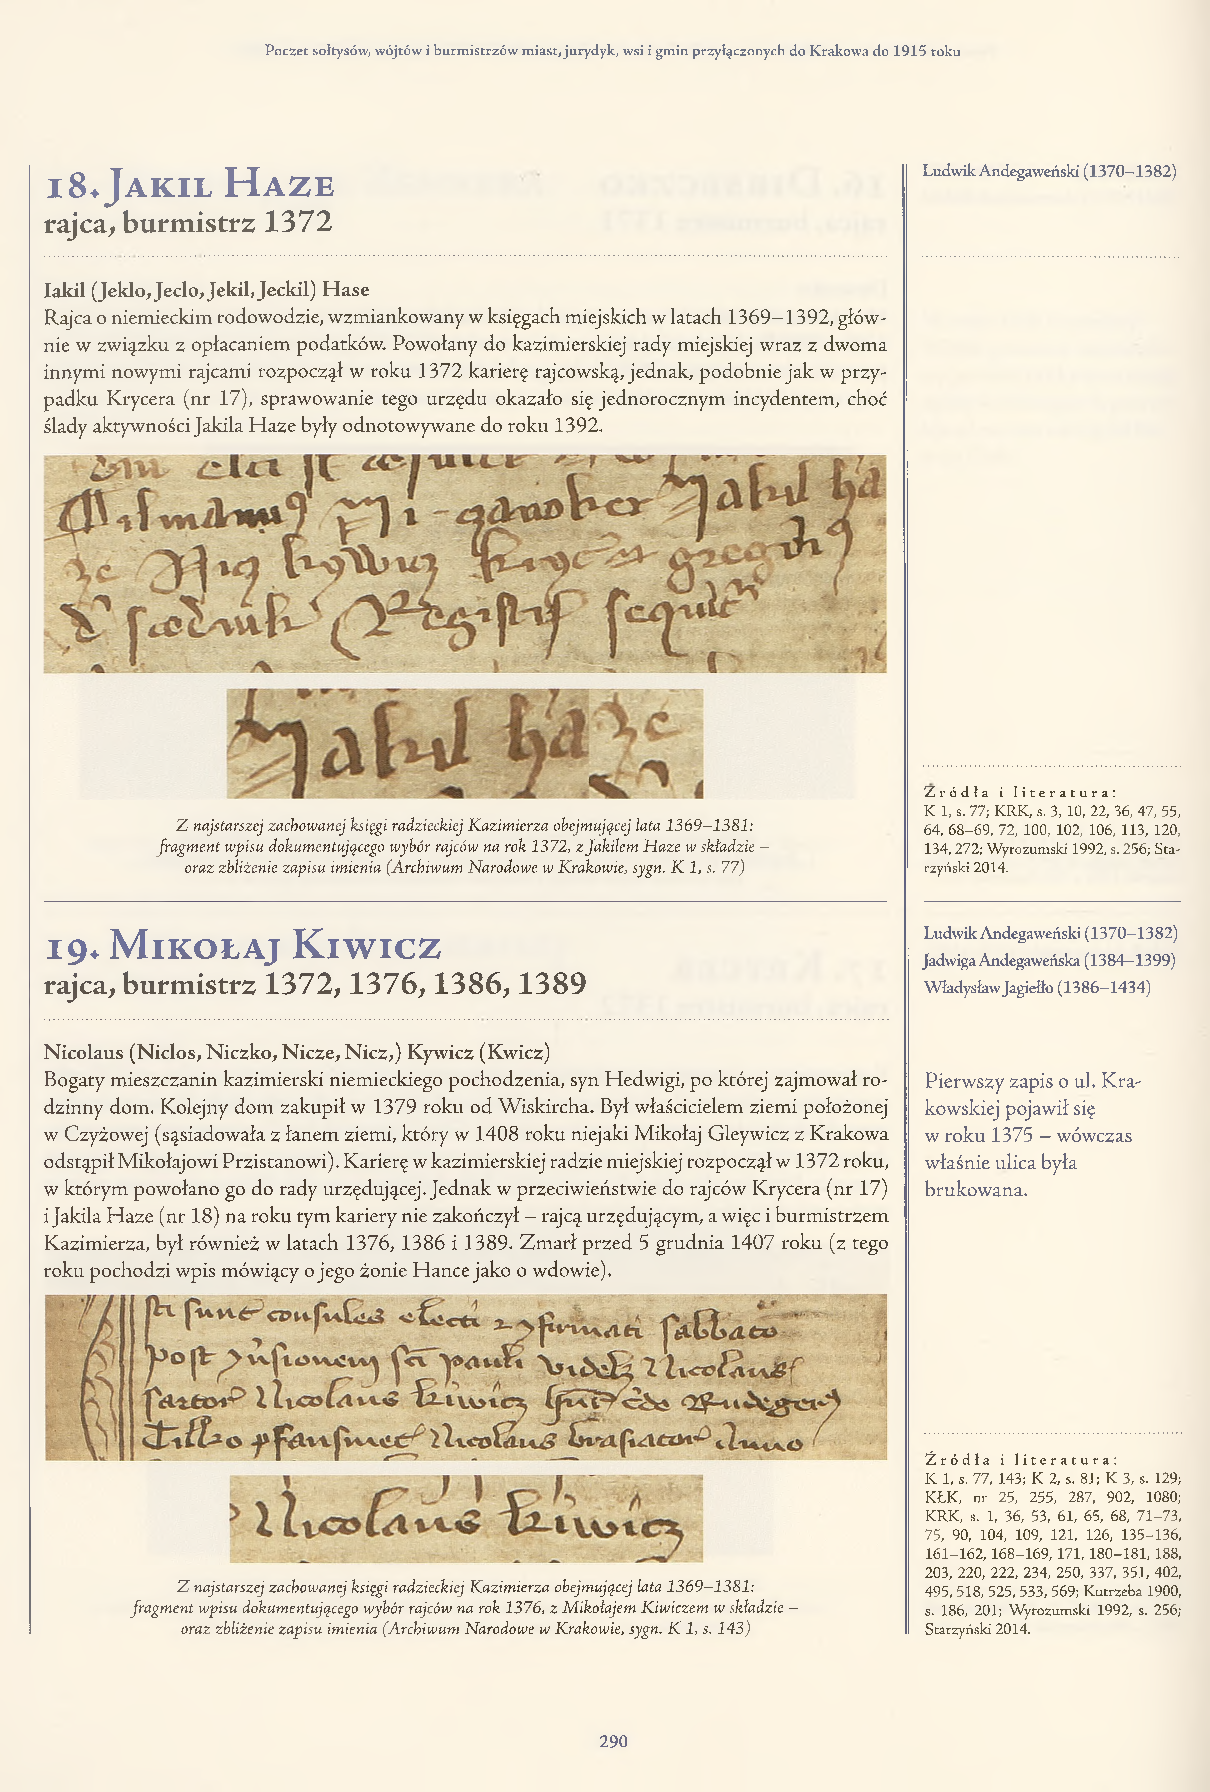 Poczet sołtysów, wójtów i burmistrzów miast, jurydyk, wsi i gmin przyłączonych do Krakowa do 1915 roku
18. Jakil Haze
rajca, burmistrz 1372
Iakil (Jeklo, Jeclo, Jekil, Jeckil) Hase
Rajca o niemieckim rodowodzie, wzmiankowany w księgach miejskich w latach 1369–1392, głów-
nie w związku z opłacaniem podatków. Powołany do kazimierskiej rady miejskiej wraz z dwoma
innymi nowymi rajcami rozpoczął w roku 1372 karierę rajcowską, jednak, podobnie jak w przy-
padku Krycera (nr 17), sprawowanie tego urzędu okazało się jednorocznym incydentem, choć
ślady aktywności Jakila Haze były odnotowywane do roku 1392.
Jakil ha
ze
Jakil haze
Z najstarszej zachowanej księgi radzieckiej Kazimierza obejmującej lata 1369–1381:
fragment wpisu dokumentującego wybór rajców na rok 1372, z Jakilem Haze w składzie –
oraz zbliżenie zapisu imienia (Archiwum Narodowe w Krakowie, sygn. K 1, s. 77)
Ludwik Andegaweński (1370–1382)
Źródła i literatura:
K 1, s. 77; KRK, s. 3, 10, 22, 36, 47, 55,
64, 68–69, 72, 100, 102, 106, 113, 120,
134, 272; Wyrozumski 1992, s. 256; Sta-
rzyński 2014.
19. Mikołaj Kiwicz
rajca, burmistrz 1372, 1376, 1386, 1389
Nicolaus (Niclos, Niczko, Nicze, Nicz,) Kywicz (Kwicz)
Bogaty mieszczanin kazimierski niemieckiego pochodzenia, syn Hedwigi, po której zajmował ro-
dzinny dom. Kolejny dom zakupił w 1379 roku od Wiskircha. Był właścicielem ziemi położonej
w Czyżowej (sąsiadowała z łanem ziemi, który w 1408 roku niejaki Mikołaj Gleywicz z Krakowa
odstąpił Mikołajowi Przistanowi). Karierę w kazimierskiej radzie miejskiej rozpoczął w 1372 roku,
w którym powołano go do rady urzędującej. Jednak w przeciwieństwie do rajców Krycera (nr 17)
i Jakila Haze (nr 18) na roku tym kariery nie zakończył – rajcą urzędującym, a więc i burmistrzem
Kazimierza, był również w latach 1376, 1386 i 1389. Zmarł przed 5 grudnia 1407 roku (z tego
roku pochodzi wpis mówiący o jego żonie Hance jako o wdowie).
Nicolaus kiwicz
Nicolaus kiwicz
Z najstarszej zachowanej księgi radzieckiej Kazimierza obejmującej lata 1369–1381:
fragment wpisu dokumentującego wybór rajców na rok 1376, z Mikołajem Kiwiczem w składzie –
oraz zbliżenie zapisu imienia (Archiwum Narodowe w Krakowie, sygn. K 1, s. 143)
Ludwik Andegaweński (1370–1382)
Jadwiga Andegaweńska (1384–1399)
Władysław Jagiełło (1386–1434)
Pierwszy zapis o ul. Kra-
kowskiej pojawił się
w roku 1375 – wówczas
właśnie ulica była
brukowana.
Źródła i literatura:
K 1, s. 77, 143; K 2, s. 8J; K 3, s. 129;
KŁK, nr 25, 255, 287, 902, 1080;
KRK, s. 1, 36, 53, 61, 65, 68, 71–73,
75, 90, 104, 109, 121, 126, 135–136,
161–162, 168–169, 171, 180–181, 188,
203, 220, 222, 234, 250, 337, 351, 402,
495, 518, 525, 533, 569; Kutrzeba 1900,
s. 186, 201; Wyrozumski 1992, s. 256;
Starzyński 2014.
290